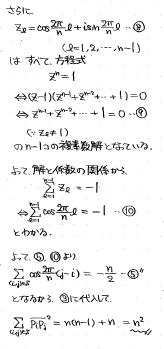 さらに、
z_ℓ = cos 2π/n ℓ + i sin 2π/n ℓ …⑧
(ℓ=1,2,…,n-1)
は すべて、方程式
z^n = 1
⇔ (z-1)(z^{n-1}+z^{n-2}+…+1) = 0
⇔ z^{n-1}+z^{n-2}+…+1 = 0 …⑨
(∵ z_ℓ≠1)
の n-1コの複素数解となっている。
よって、解と係数の関係から、
Σ z_ℓ = -1
⇔ Σ cos 2π/n ℓ = -1 …⑩
とわかる。
よって、⑥,⑩より
Σ cos 2π/n (j-i) = -n/2 …⑤''
となるから、③に代入して
Σ P_iP_j^2 = n(n-1)+n = n^2